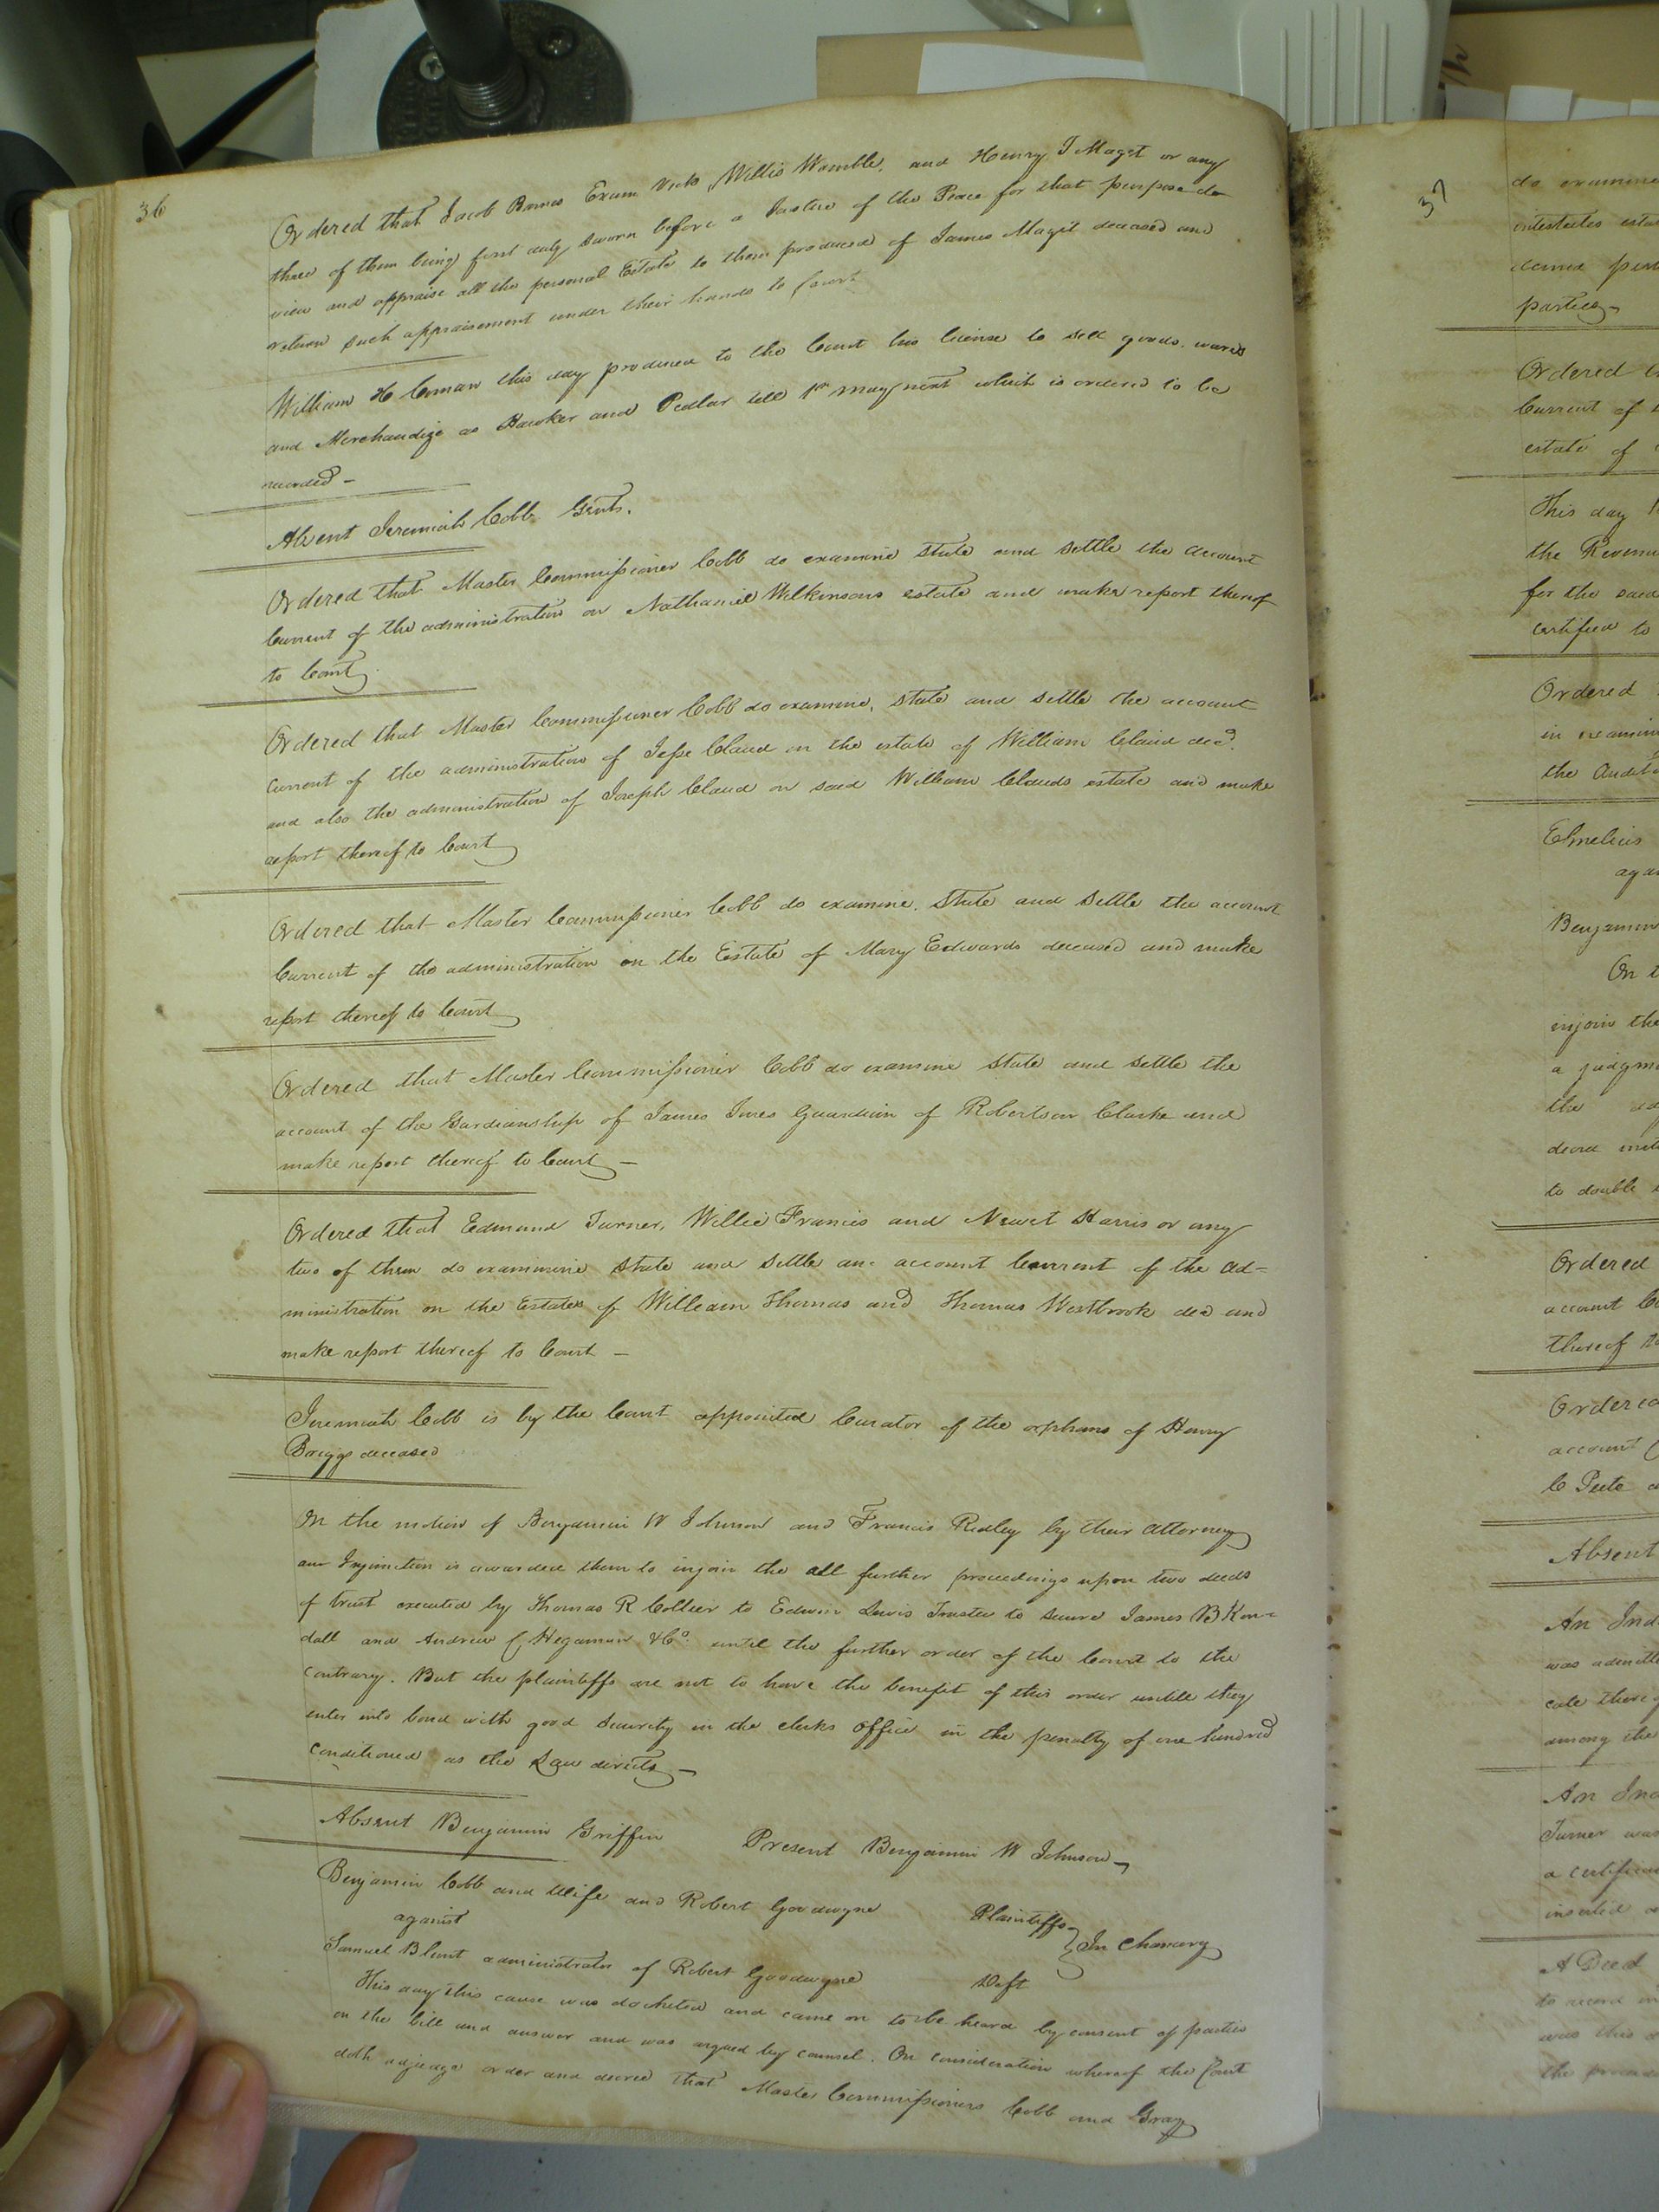 36
Ordered that Jacob Barnes Exum Vick, Willis Womble, and Henry J Maget or any
three of them being first duly sworn before a Justice of the Peace for that purpose do
view and appraise all the personal Estate to them produced of James Maget deceased and
return such appraisement under their hands to Court
William H Coman this day produced to the Court his license to sell goods, wares
and Merchandize as Hawker and Pedlar till 1st may next which is ordered to be
recorded -
Absent Jeremiah Cobb Gent.
Ordered that Master Commissioner Cobb do examine State and Settle the account
Current of the administration on Nathaniel Wilkinsons estate and make report thereof
to Court
Ordered that Master Commissioner Cobb do examine, state and settle the account
Current of the administration of Jesse Claud on the estate of William Claud decd.
and also the administration of Joseph Claud on said William Clauds estate and make
report thereof to Court
Ordered that Master Commissioner Cobb do examine, State and Settle the account
Current of the administration on the Estate of Mary Edwards deceased and make
report thereof to Court
Ordered that Master Commissioner Cobb do examine State and settle the
account of the Gardianship of James Jones Guardian of Robertson Clarke and
make report thereof to Court -
Ordered that Edmund Turner, Willie Francis and Newit Harris or any
two of them do examinine State and Settle an account Current of the ad=
ministration on the Estates of William Thomas and Thomas Westbrook decd and
make report thereof to Court -
Jeremiah Cobb is by the Court appointed Curator of the orphans of Henry
Briggs deceased
On the motion of Benjamin W Johnson and Francis Ridley by their attorney
an Injunction is awarded them to injoin the all further proceedings upon two deeds
of trust executed by Thomas R Collier to Edwin Lewis Trustee to secure James B Ken=
dall and Andrew C Hegamun & Co. until the further order of the Court to the
Contrary. But the plaintiffs are not to have the benefit of this order untill they
enter into bond with good security in the clerks office in the penalty of one hundred
Conditioned as the Law directs -
Absent Benjamin Griffin Present Benjamin W Johnson -
Benjamin Cobb and Wife and Robert Goodwyne Plaintiffs
against In Chancery
Samuel Blunt administrator of Robert Goodwyne Deft
This day this cause was docketed and came on to be heard by consent of parties
on the bill and answer and was argued by counsel. On consideration whereof the Court
doth adjudge order and decree that Master Commissioners Cobb and Gray
37
do examine
intestates
parties
Ordered
Current of
estate of
This day
the
for the said
certified to
Ordered
in
the
Benjamin
On
injoin the
a
the
to double
Ordered
account
thereof
Ordered
account
Absent
An
was
among the
An
Turner was
a
A Deed
to record
was this
the